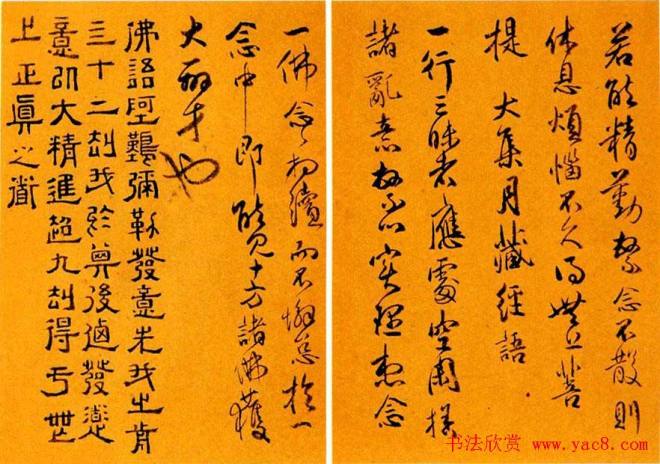 若能精勤繫念不散則
休息煩惱不久得無上菩
提 大集月藏經語
一行三昧者應處空閑捨
諸亂意實理想念
一佛念々相續而不懈怠於一
念中即能見十方諸佛獲
大辯才也
佛語阿難彌勒發意先我之前
三十二劫我於其後迺發道
意以大精進超九劫得于無
上正眞之道
书法欣赏 www.yac8.com